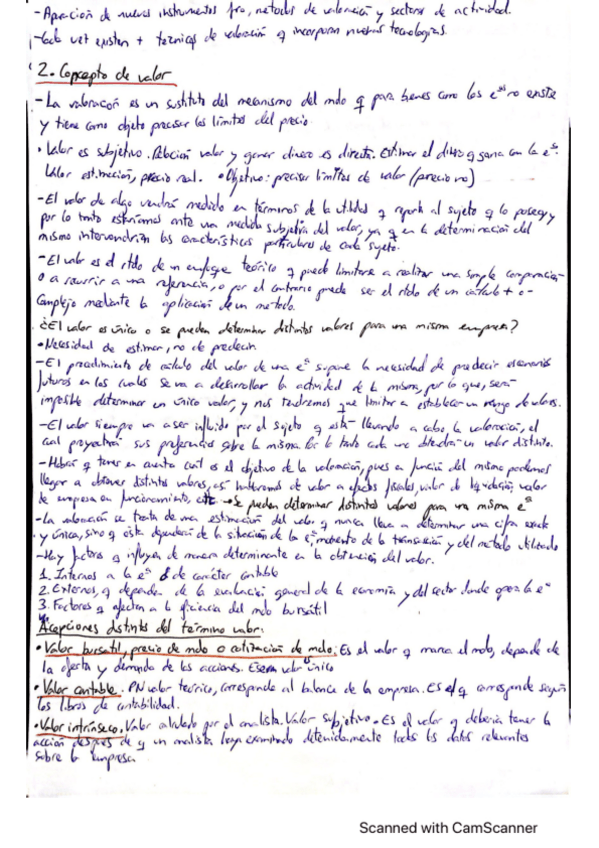 -Aparición de nuevos instrumentos fro, metodos de valoración y sectores de actividad.
-Cada vez existen + tecnicas de valoración q incorporan nuevas tecnologías.
2. Concepto de valor
-La valoración es un sustituto del mecanismo del mdo q para bienes como los eas no existe
y tiene como objeto precisar los límites del precio.
• Valor es subjetivo. Relación valor y generar dinero es directa. Estimar el dinero q gana con la ea.
Valor estimación, precio real. • Objetivo: precisar límites de valor (precio no)
-El valor de algo vendrá medido en términos de la utilidad q reporta al sujeto q lo posea, y
por lo tanto estaríamos ante una medida subjetiva del valor, ya q en la determinación del
mismo intervendrían las características particulares de cada sujeto.
-El valor es el rtdo de un enfoque teórico q puede limitarse a realizar una simple comparación
o a recurrir a una referencia, o por el contrario puede ser el rtdo de un cálculo + o -
complejo mediante la aplicación de un metodo.
¿El valor es único o se pueden determinar distintos valores para una misma empresa?
• Necesidad de estimar, no de predecir.
-El procedimiento de cálculo del valor de una ea supone la necesidad de predecir escenarios
futuros en los cuales se va a desarrollar la actividad de la misma, por lo que, será
imposible determinar un único valor, y nos tendremos que limitar a establecer un rango de valores.
-El valor siempre va a ser influido por el sujeto q está llevando a cabo, la valoración, el
cual proyectará sus preferencias sobre la misma. Por lo tanto cada uno obtendrá un valor distinto.
-Habrá q tener en cuenta cuál es el objetivo de la valoración, pues en función del mismo podemos
llegar a obtener distintos valores, así hablaremos de valor a efectos fiscales, valor de liquidación, valor
de empresa en funcionamiento, etc → se pueden determinar distintos valores para una misma ea
-La valoración se trata de una estimación del valor y nunca lleva a determinar una cifra exacta
y única, sino q esta dependerá de la situación de la ea, momento de la transacción y del metodo utilizado
-Hay factores q influyen de manera determinante en la obtención del valor.
1. Internos a la ea de carácter contable
2. Externos, q dependen de la evolución general de la economía y del sector donde opera la ea
3. Factores q afectan a la eficiencia del mdo bursátil
Acepciones distintas del termino valor:
• Valor bursátil, precio de mdo o cotización de mdo: Es el valor q marca el mdo, depende de
la oferta y demanda de las acciones. Es un valor único
• Valor contable. PN valor teórico, corresponde al balance de la empresa. Es el q corresponde según
los libros de contabilidad.
• Valor intrínseco. Valor calculado por el analista. Valor subjetivo. Es el valor q debería tener la
acción después de q un analista haya examinado detenidamente todos los datos relevantes
sobre la empresa
Scanned with CamScanner